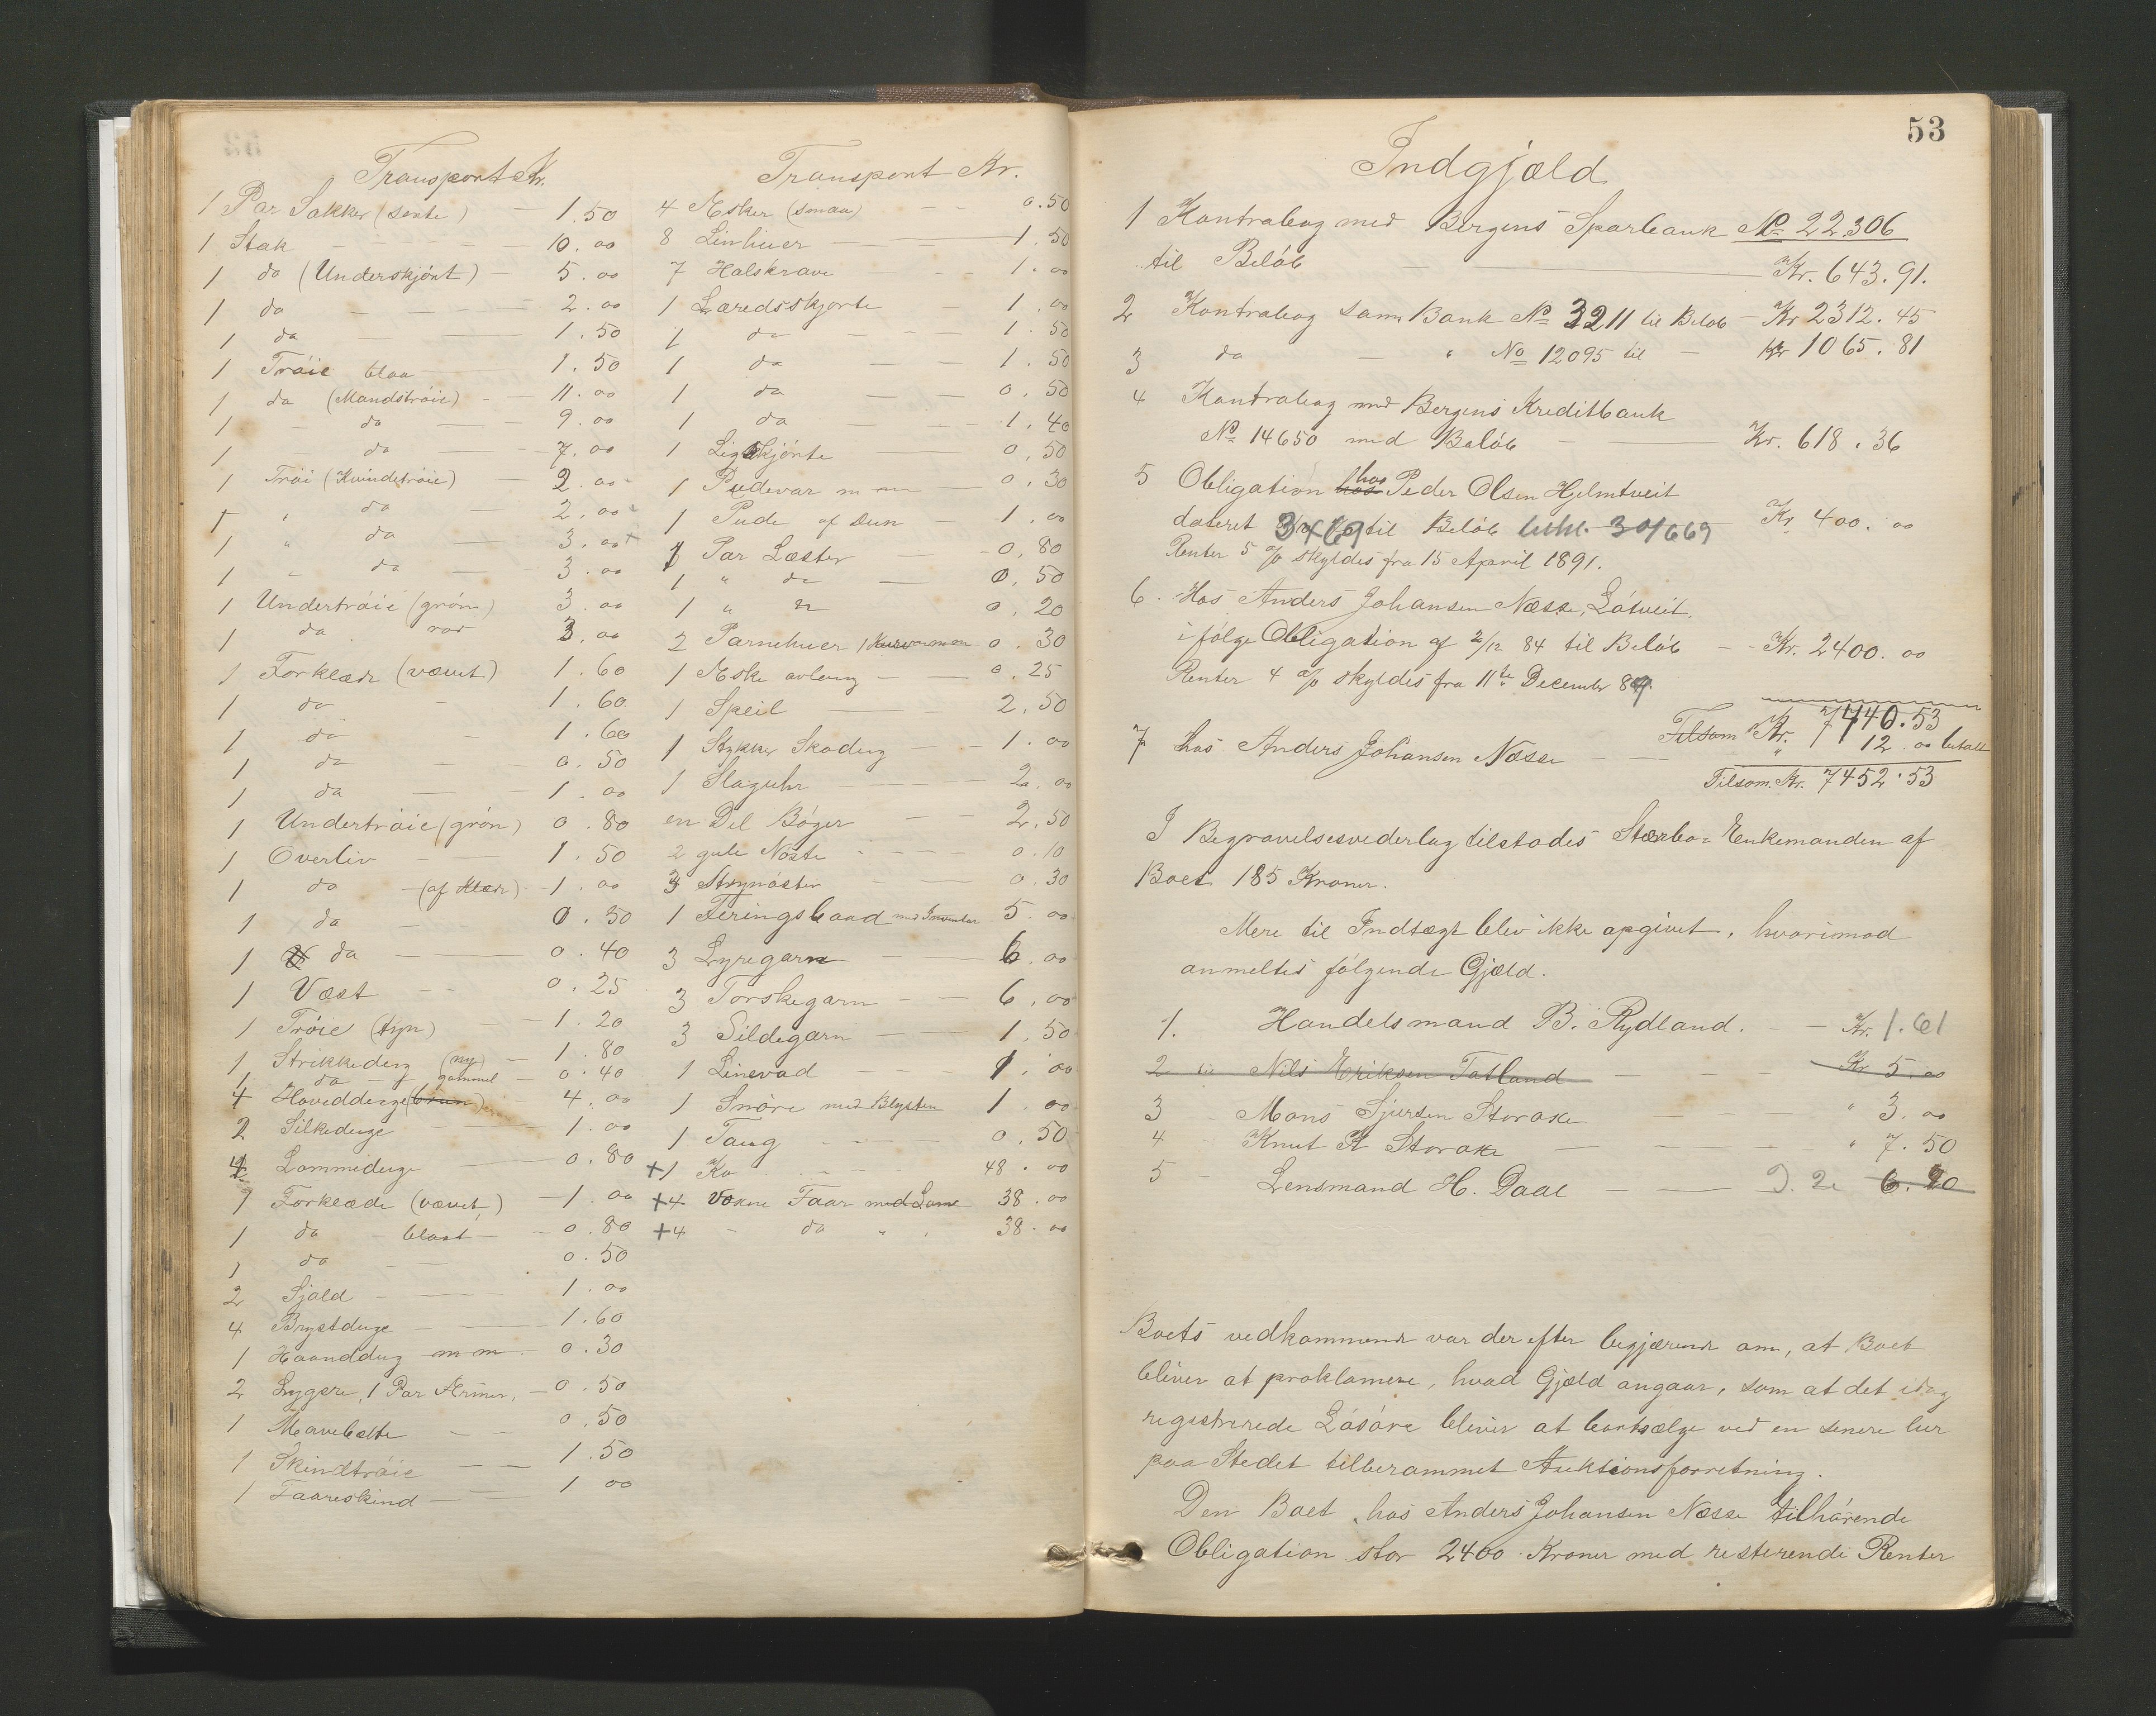 Transport Kr.
1 Par Sokker (sorte) — 1.50
1 Stak — 10.00
1 do (Underskjört) — 5.00
1 do — 2.00
1 do — 1.50
1 Tröie blaa — 1.50
1 do (Mandströie) — 11.00
1 do — 9.00
1 do — 7.00
1 Tröi (Kvindetröie) — 2.00
1 " do — 2.00
1 " do — 3.00
1 " do — 3.00
1 Undertröie (grön) 3.00
1 do rod 3.00
1 Forklæde (vævet) 1.60
1 do — 1.60
1 do — 1.60
1 do — 0.50
1 do — 1.00
1 Undertröie (grön) 0.80
1 Overliv — 1.50
1 do — (af Klæde) — 1.00
1 do — 0.50
1 do — 0.40
1 Væst — 0.25
1 Tröie (tyn) — 1.20
1 Strikkedug (ny) — 1.80
1 do — gammel — 0.40
4 Hovedduge (brun) 4.00
2 Silkeduge — 1.00
4 Lommeduge — 0.80
1 Forklæde (vævet) — 1.00
1 do — blaat — 0.80
1 do — 0.50
2 Sjald — 1.00
4 Brystduge — 1.60
1 Haanddug m m. 0.30
2 Lygere, 1 Par Ærmer, — 0.50
1 Mavebælte — 0.50
1 Skindtröie — 1.50
1 Faareskind — 1 00
Transport Kr.
4 Æsker (smaa) — 0.50
8 Linhuer — 1.50
7 Halskrave — 1.00
1 Læredsskjorte — 1.00
1 do — 1.50
1 do — 1.50
1 do — 0.50
1 do — 1.40
1 Ligskjörte — 0.50
1 Pudevar m m — 0.30
1 Pude af Dun — 1.00
1 Par Læster — 0.80
1 " do — 0.50
1 " " 0.20
2 Barnehuer 1 0.30
1 Æske avlang — 0.25
1 Speil — 2.50
1 Stykker Skodug — 1.00
1 Slaguhr — 2.00
en Del Böger — 2.50
2 gule Nöste — 0.10
3 Strynöster — 0.30
1 Færingsbaad med Inventar 5.00
3 Lyregarn — 6.00
3 Torskegarn — 6.00
3 Sildegarn — 1.50
1 Linevad — 1.00
1 Snöre med Blysten 1.00
1 Taug — 0.50
+1 Ko — 48.00
+4 Vokne Faar med Lam 38.00
+4 — do " " 38.00
53
Indgjæld
1 Kontrabog med Bergens Sparbank No 22306
til Belöb — Kr. 643.91.
2 Kontrabog samme Bank No 3211 til Belöb — Kr 2312.45
3 do — " No 12095 til — Kr 1065.81
4 Kontrabog med Bergens Kreditbank
No 14650 med Belöb — Kr. 618.36
5 Obligation hos hos Peder Olsen Hjelmtveit
dateret til Belöb Kr 400.00
Renter 5 % skyldes fra 15 April 1891.
6. Hos Anders Johansen Næsse, Lötveit,
ifölge Obligation af 2/12 84 til Belöb — Kr. 2400.00
Renter 4 % skyldes fra 11te December 89.
Tilsam Kr. 7440.53
7 hos Anders Johansen Næsse — " 12.00 betalt
Tilsam. Kr. 7452.53
I Begravelsesvederlag tilstodes Stærbo-Enkemanden af
Boet 185 Kroner.
Mere til Indtægt blev ikke opgivet, hvorimod
anmeltes fölgende Gjæld.
1. Handelsmand B. Rydland. — Kr. 1.61
2 til Nils Eriksen Tatland — Kr 5.00
3 Mons Sjursen Storake — " 3.00
4 Knut K Storake — " 7.50
5 — Lensmand H. Daae — 9.20 6.20
Boets vedkommende var derefter begjærende om, at Boet
bliver at proklamere, hvad Gjæld angaar, som at det idag
registrerede Lösöre bliver at bortsælge ved en senere her
paa Stedet tilberammet Auktionsforretning.
Den Boet, hos Anders Johansen Næsse tilhörende
Obligation stor 2400 Kroner med resterende Renter